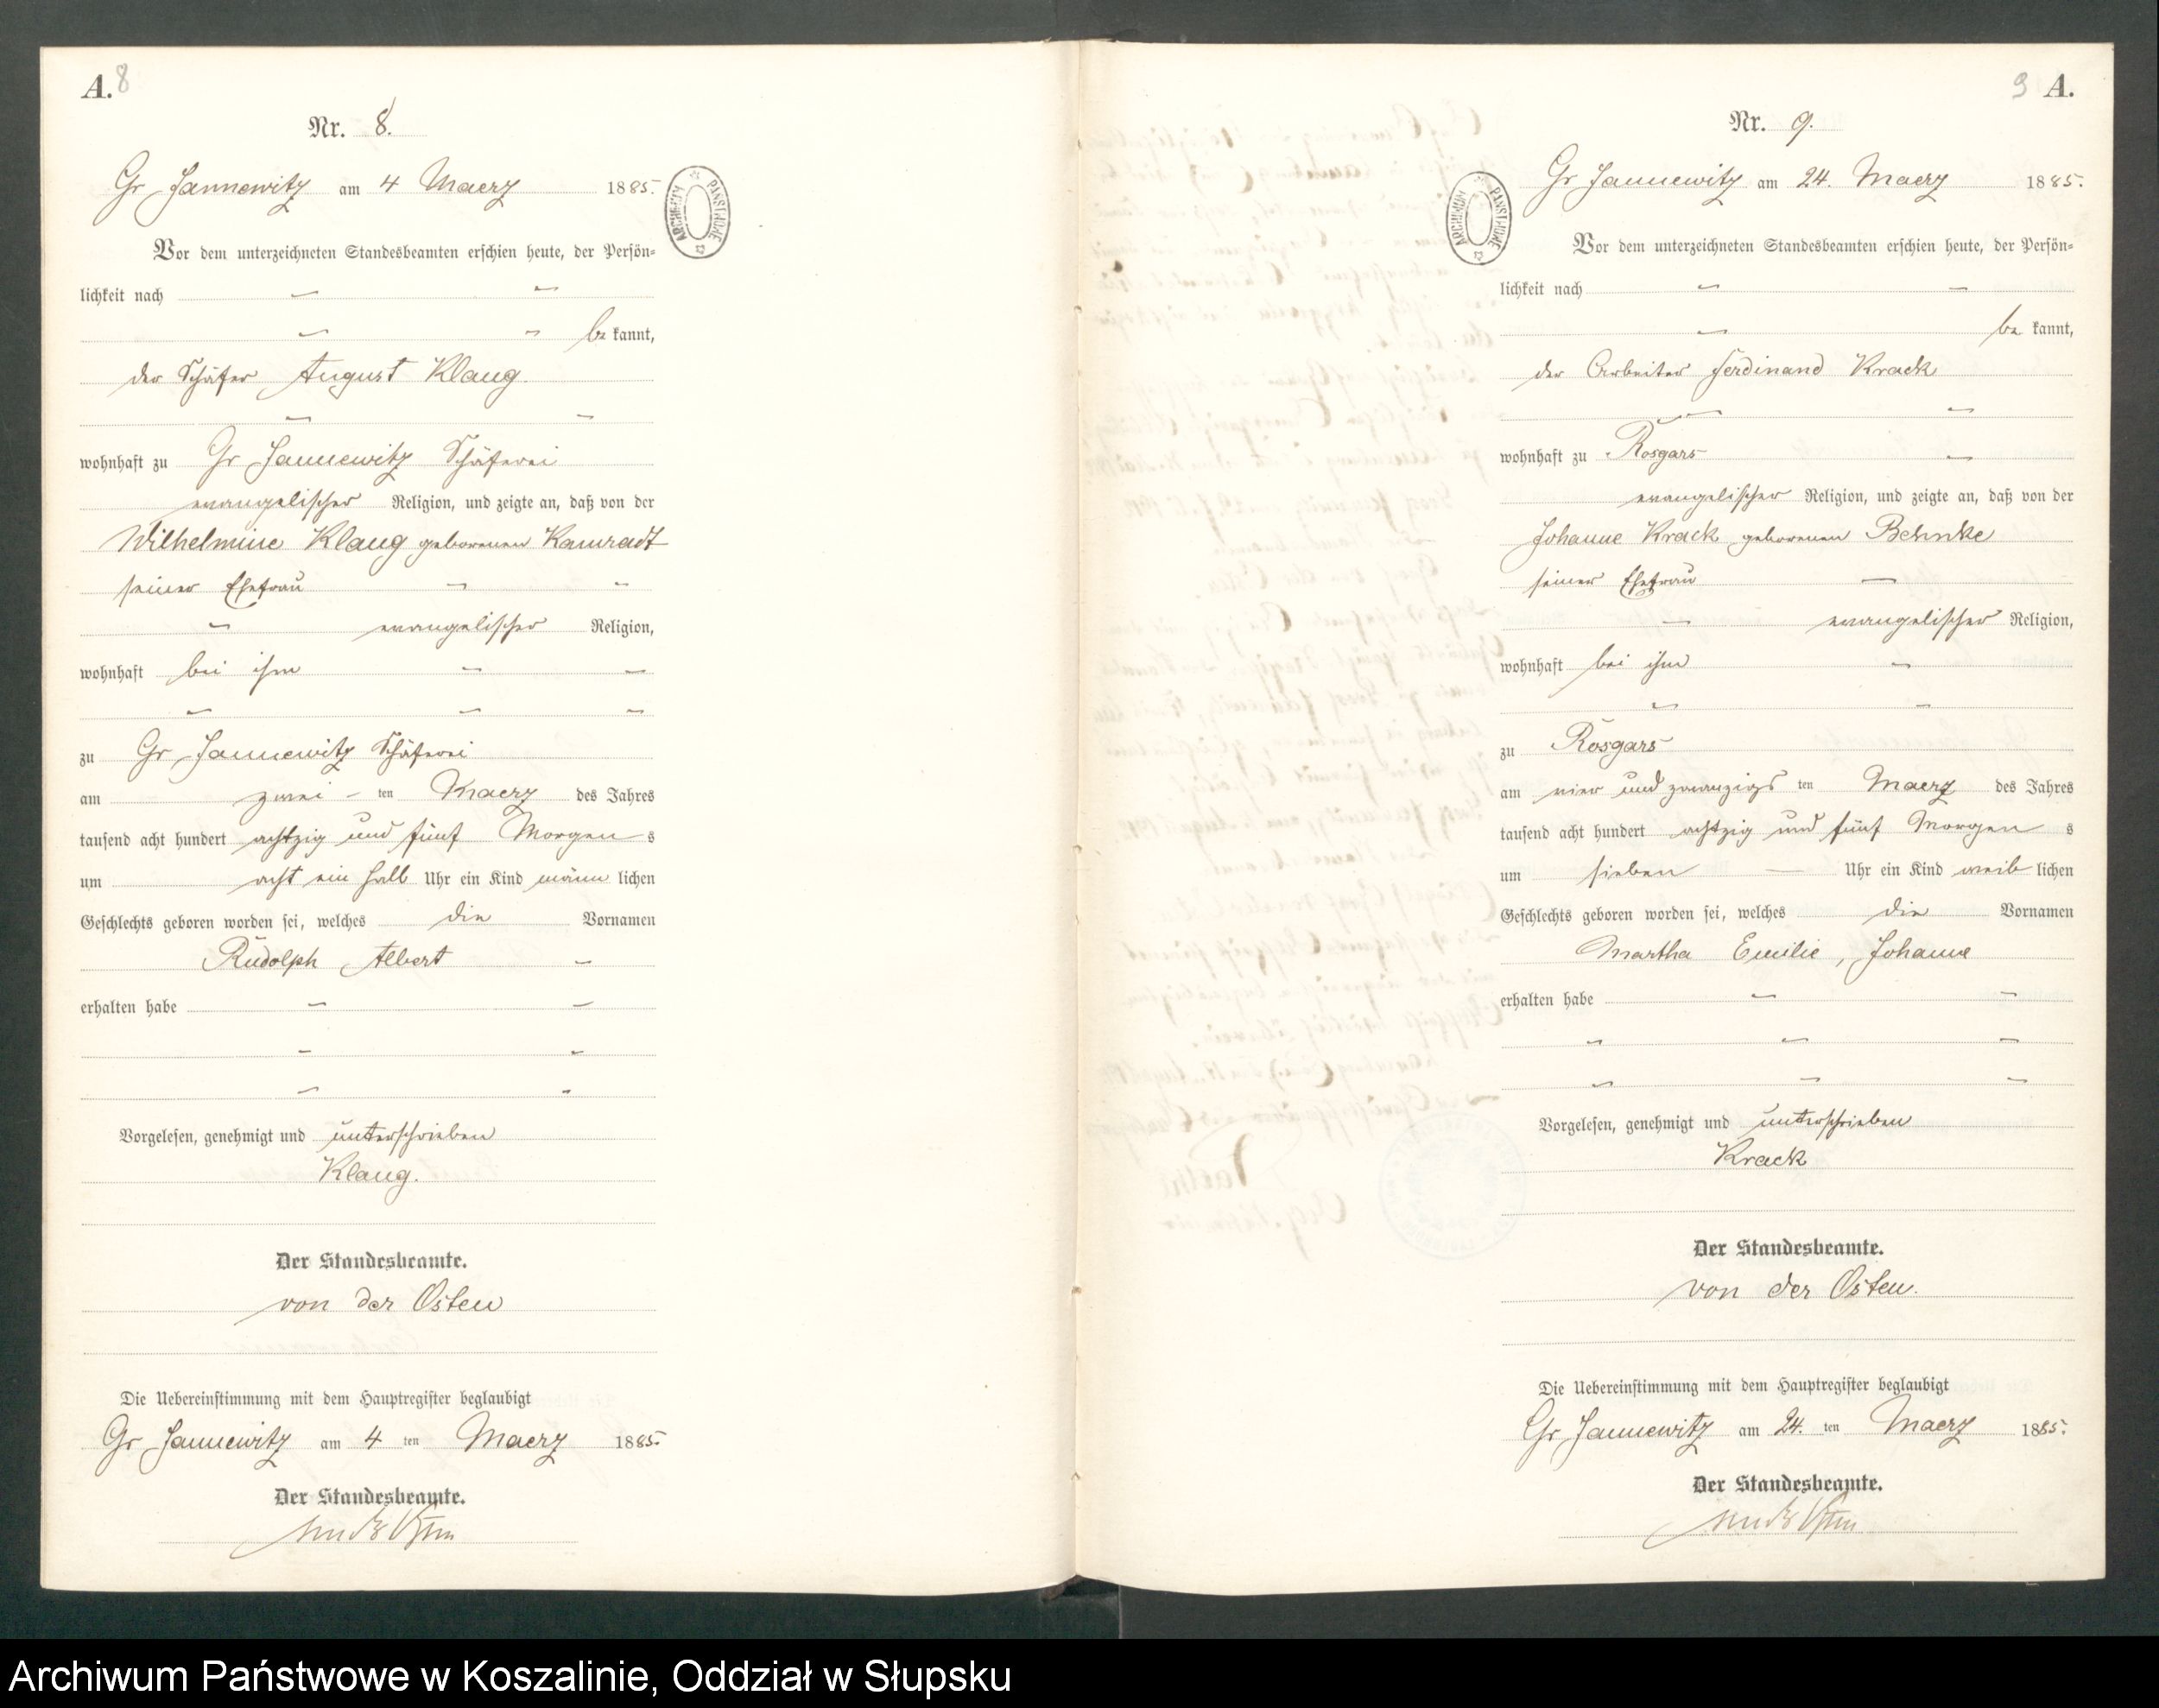 A. 8
Nr. 8.
Gr Jannewitz am 4 Maerz 1885.
Vor dem unterzeichneten Standesbeamten erschien heute, der Persön=
lichkeit nach
be kannt,
der Schäfer August Klaug.
wohnhaft zu Gr Jannewitz Schäferei
evangelischer Religion, und zeigte an, daß von der
Wilhelmine Klaug geborenen Kamradt
seiner Ehefrau
evangelischer Religion,
wohnhaft bei ihm
zu Gr Jannewitz Schäferei
am zwei - ten Maerz des Jahres
tausend acht hundert achtzig und fünf Morgen s
um acht ein halb Uhr ein Kind männ lichen
Geschlechts geboren worden sei, welches die Vornamen
Rudolph Albert
erhalten habe
Vorgelesen, genehmigt und unterschrieben
Klaug.
Der Standesbeamte.
von der Osten
Die Uebereinstimmung mit dem Hauptregister beglaubigt
Gr Jannewitz am 4 ten Maerz 1885.
Der Standesbeamte.
von der Osten
ARCHIWUM PAŃSTWOWE
9 A.
Nr. 9.
Gr Jannewitz am 24. Maerz 1885.
ARCHIWUM PAŃSTWOWE
Vor dem unterzeichneten Standesbeamten erschien heute, der Persön=
lichkeit nach
be kannt,
der Arbeiter Ferdinand Krack
wohnhaft zu Rosgars
evangelischer Religion, und zeigte an, daß von der
Johanne Krack geborenen Behnke
seiner Ehefrau
evangelischer Religion,
wohnhaft bei ihm
zu Rosgars
am vier und zwanzigs ten Maerz des Jahres
tausend acht hundert achtzig und fünf Morgen s
um sieben Uhr ein Kind weib lichen
Geschlechts geboren worden sei, welches die Vornamen
Martha Emilie, Johanne
erhalten habe
Vorgelesen, genehmigt und unterschrieben
Krack
Der Standesbeamte.
von der Osten.
Die Uebereinstimmung mit dem Hauptregister beglaubigt
Gr Jannewitz am 24. ten Maerz 1885.
Der Standesbeamte.
von der Osten
Archiwum Państwowe w Koszalinie, Oddział w Słupsku